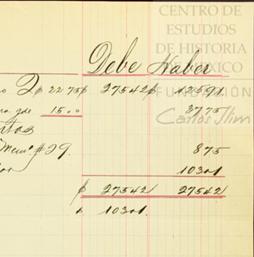 CENTRO DE
ESTUDIOS
DE HISTORIA
DE MEXICO
FUNDACIÓN
Carlos Slim
Debe Haber
2 $ 2275 $ 27542 $ 12591
1500 3775
29. 875
10301
$ 27542 27542
10301.